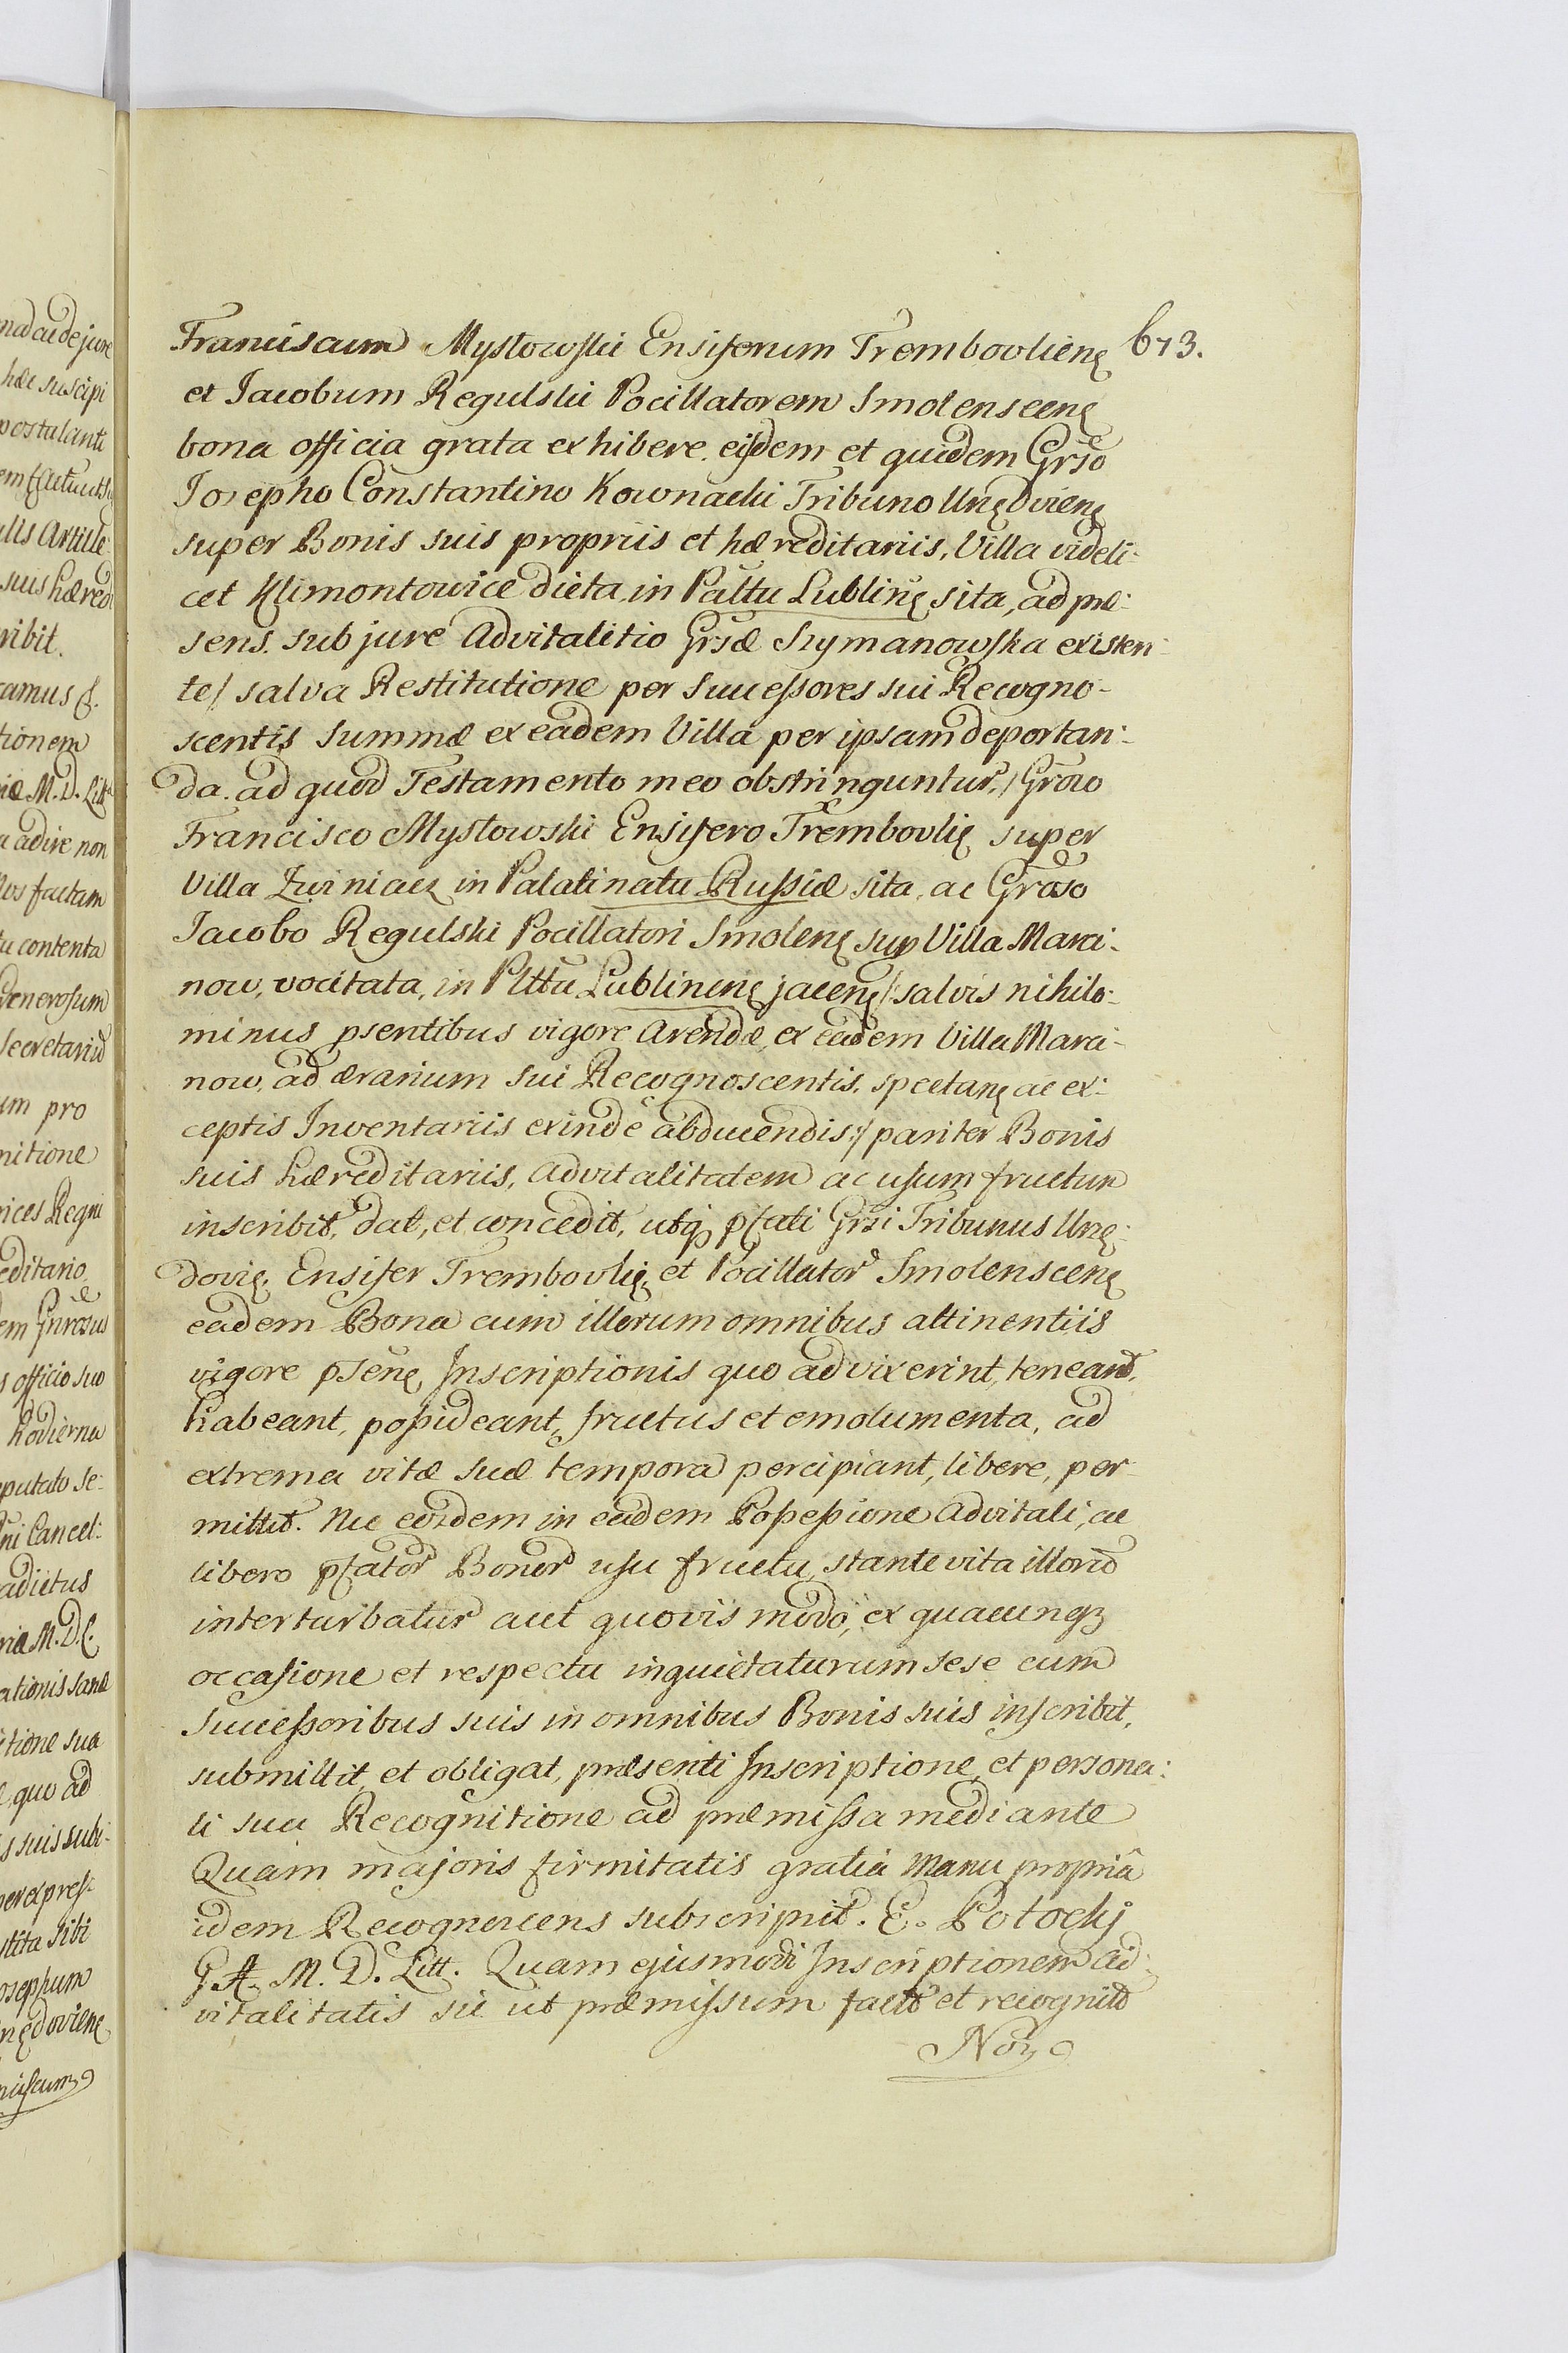 673.
Franciscum Mysłowski Ensiferum Trembovlienę
et Jacobum Regulski Pocillatorem Smolenscenę
bona officia grata exhibere. eisdem et quidem Grso
Josepho Constantino Kownacki Tribuno Urzędvienę
super Bonis suis propriis et hæreditariis, Villa videli-
cet Klimontowice dicta, in Palttu Lublinę sita, ad præ-
sens. sub jure Advitalitio Grsæ Szymanowska existen-
te/ salva Restitutione per Successores sui Recogno-
scentis Summæ ex eadem Villa per ipsam deportan-
da. ad quod Testamento meo obstringuntur,/ Groso
Francisco Mysłowski Ensifero Trembovlię super
Villa Zwiniacz in Palatinatu Russiæ sita, ac Groso
Jacobo Regulski Pocillatori Smolenę sup Villa Marci-
now, vocitata, in Plttu Lublinenę jacenę/ salvis nihilo-
minus psentibus vigore Arendæ, ex eadem Villa Marci-
now, ad ærarium sui Recognoscentis, spectanę ac ex-
ceptis Inventariis exinde abducendis:/ pariter Bonis
suis hæreditariis, Advitalitatem ac usum fructum
inscribit, dat, et concedit, utq pfati Grsi Tribunus Urzę-
dovię, Ensifer Trembovlię, et Pocillator Smolenscenę
eadem Bona cum illorum omnibus attinentiis
vigore psenę Inscriptionis quo advixerint, teneant,
habeant, possideant, fructus et emolumenta, ad
extrema vitæ suæ tempora percipiant, libere, per-
mittit. Nec eosdem in eadem Possessione Advitali, ac
libero pfator Bonor usu fructu, stante vita illorum
interturbatur aut quovis modo, ex quacunqz
occasione et respectu inquietaturum sese cum
Successoribus suis in omnibus Bonis suis inscribit,
submittit, et obligat, præsenti Inscriptione, et persona-
li sua Recognitione ad præmissa mediante
Quam majoris firmitatis gratia manu propriâ
idem Recognoscens subscripsit. E. Potocki
G. A. M. D. Litt. Quam ejusmodi Inscriptionem ad-
vitalitatis sic ut præmissum fact et recognit
Nos